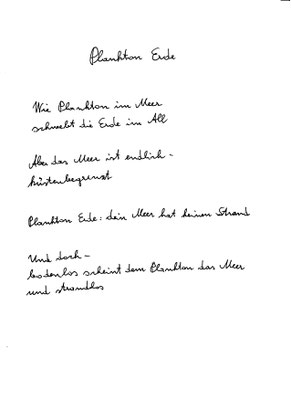 Plankton Erde
Wie Plankton im Meer
schwebt die Erde im All
Aber das Meer ist endlich –
küstenbegrenzt
Plankton Erde: dein Meer hat keinen Strand
Und doch –
bodenlos scheint dem Plankton das Meer
und strandlos